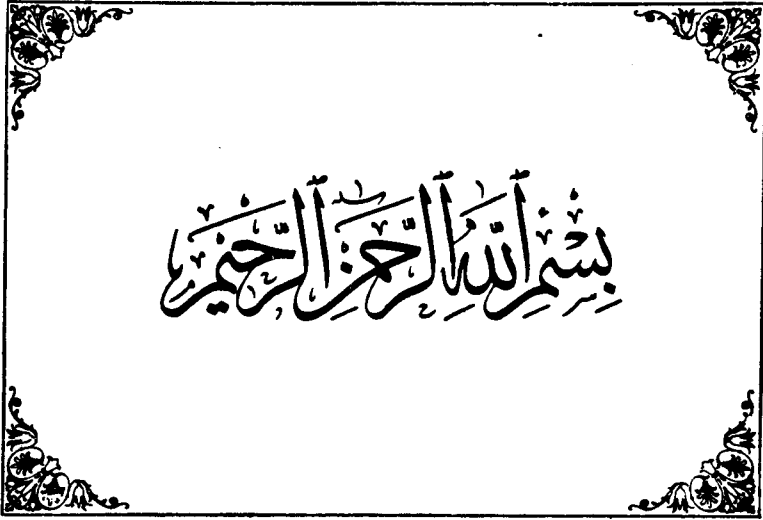 بِسْمِ ٱللَّهِ ٱلرَّحْمَنِ ٱلرَّحِيمِ